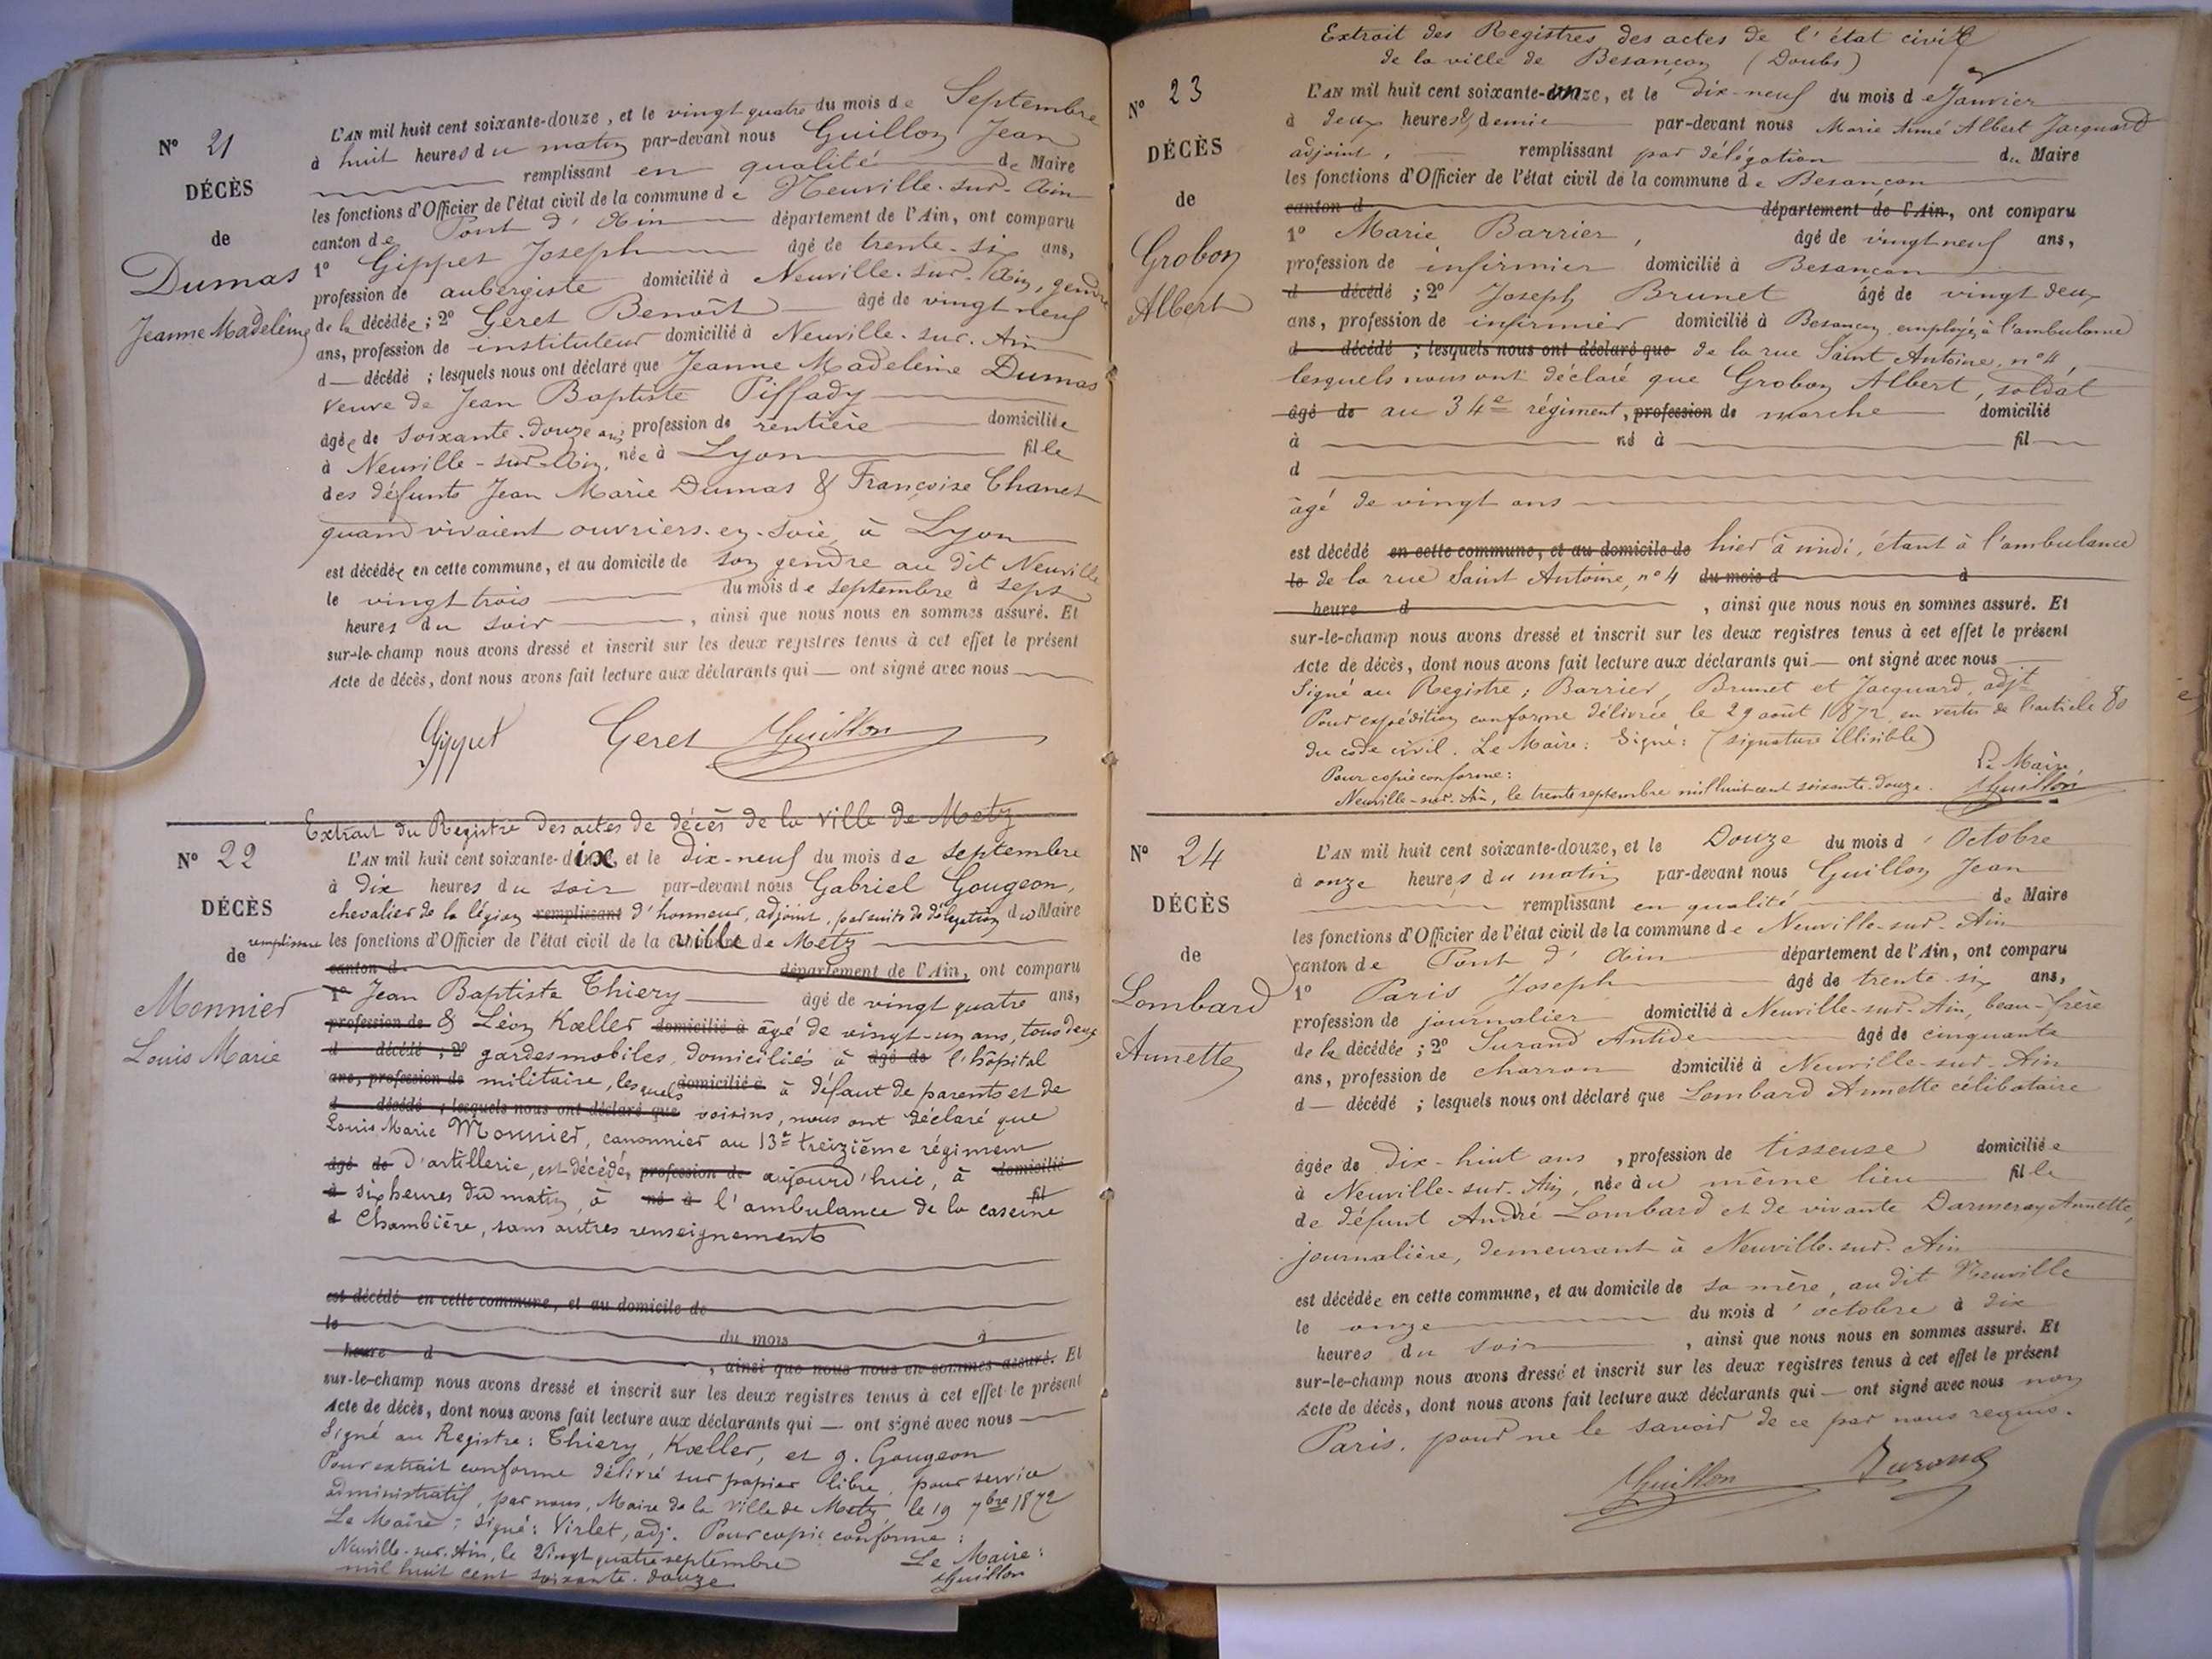 N° 21
DÉCÈS
de
Dumas
Jeanne Madeleine
L'AN mil huit cent soixante-douze, et le vingt quatre du mois de Septembre
à huit heures du matin par-devant nous Guillon Jean
remplissant en qualité de Maire
les fonctions d'Officier de l'état civil de la commune de Neuville-sur-Ain
canton de Pont d'Ain département de l'Ain, ont comparu
1° Gippet Joseph âgé de trente-six ans,
profession de aubergiste domicilié à Neuville-sur-Ain, gendre
de la décédée ; 2° Geret Benoît âgé de vingt neuf
ans, profession de instituteur domicilié à Neuville-sur-Ain
d décédé ; lesquels nous ont déclaré que Jeanne Madeleine Dumas
veuve de Jean Baptiste Piffady
âgée de soixante-douze ans, profession de rentière domiciliée
à Neuville-sur-Ain, née à Lyon fille
des défunts Jean Marie Dumas & Françoise Chanet
quand vivaient ouvriers-en-soie, à Lyon
est décédée en cette commune, et au domicile de son gendre au dit Neuville
le vingt trois du mois de septembre à sept
heures du soir, ainsi que nous nous en sommes assuré. Et
sur-le-champ nous avons dressé et inscrit sur les deux registres tenus à cet effet le présent
Acte de décès, dont nous avons fait lecture aux déclarants qui — ont signé avec nous
Gippet Geret JGuillon
Extrait du Registre des actes de décès de la ville de Metz
N° 22
DÉCÈS
de
Monnier
Louis Marie
L'AN mil huit cent soixante-dix, et le dix-neuf du mois de septembre
à dix heures du soir par-devant nous Gabriel Gougeon,
chevalier de la légion remplissant d'honneur, adjoint, par suite de délégation du Maire
remplissant les fonctions d'Officier de l'état civil de la ville de Metz
canton d département de l'Ain, ont comparu
1° Jean Baptiste Thiery âgé de vingt quatre ans,
profession de & Léon Kœller domicilié à âgé de vingt-un ans, tous deux
d décédé ; 2° gardes mobiles, domiciliés à âgé de l'hôpital
ans, profession de militaire, lesquels domicilié à à défaut de parents et de
d décédé ; lesquels nous ont déclaré que voisins, nous ont déclaré que
Louis Marie Monnier, canonnier au 13e treizième régiment
âgé de d'artillerie, est décédé, profession de aujourd'hui, à domicilié
à six heures du matin, à né à l'ambulance de la caserne fil
d Chambière, sans autres renseignements
est décédé en cette commune, et au domicile de
le du mois à
heure d, ainsi que nous nous en sommes assuré. Et
sur-le-champ nous avons dressé et inscrit sur les deux registres tenus à cet effet le présent
Acte de décès, dont nous avons fait lecture aux déclarants qui — ont signé avec nous
Signé au Registre : Thiery, Kœller, et g. Gougeon
Pour extrait conforme délivré sur papier libre, pour service
administratif, par nous, Maire de la Ville de Metz, le 19 7bre 1872
Le Maire : signé : Virlet, adj. Pour copie conforme :
Neuville-sur-Ain, le vingt quatre septembre Le Maire :
mil huit cent soixante-douze JGuillon
Extrait des Registres des actes de l'état civil
de la ville de Besançon (Doubs)
N° 23
DÉCÈS
de
Grobon
Albert
L'AN mil huit cent soixante-onze, et le dix-neuf du mois de Janvier
à deux heures & demie par-devant nous Marie Aimé Albert Jacquard
adjoint, remplissant par délégation du Maire
les fonctions d'Officier de l'état civil de la commune de Besançon
canton d département de l'Ain, ont comparu
1° Marie Barrier, âgé de vingt neuf ans,
profession de infirmier domicilié à Besançon
d décédé ; 2° Joseph Brunet âgé de vingt deux
ans, profession de infirmier domicilié à Besançon employés à l'ambulance
d décédé ; lesquels nous ont déclaré que de la rue Saint Antoine, n° 4,
lesquels nous ont déclaré que Grobon Albert, soldat
âgé de au 34e régiment, profession de marche domicilié
à né à fil
d
âgé de vingt ans
est décédé en cette commune, et au domicile de hier à midi, étant à l'ambulance
le de la rue Saint Antoine, n° 4 du mois d à
heure d, ainsi que nous nous en sommes assuré. Et
sur-le-champ nous avons dressé et inscrit sur les deux registres tenus à cet effet le présent
Acte de décès, dont nous avons fait lecture aux déclarants qui — ont signé avec nous
Signé au Registre : Barrier, Brunet et Jacquard, adjt
Pour expédition conforme délivrée le 29 août 1872 en vertu de l'article 80
du code civil. Le Maire : Signé : (signature illisible)
Pour copie conforme : Le Maire,
Neuville-sur-Ain, le trente septembre mil huit cent soixante-douze. JGuillon
N° 24
DÉCÈS
de
Lombard
Annette
L'AN mil huit cent soixante-douze, et le Douze du mois d'Octobre
à onze heures du matin par-devant nous Guillon Jean
remplissant en qualité de Maire
les fonctions d'Officier de l'état civil de la commune de Neuville-sur-Ain
canton de Pont d'Ain département de l'Ain, ont comparu
1° Paris Joseph âgé de trente-six ans,
profession de journalier domicilié à Neuville-sur-Ain, beau-frère
de la décédée ; 2° Surand Antide âgé de cinquante
ans, profession de charron domicilié à Neuville-sur-Ain
d — décédé ; lesquels nous ont déclaré que Lombard Annette célibataire
âgée de dix-huit ans, profession de tisseuse domiciliée
à Neuville-sur-Ain, née au même lieu fille
de défunt André Lombard et de vivante Darmeray Annette,
journalière, demeurant à Neuville-sur-Ain
est décédée en cette commune, et au domicile de sa mère, au dit Neuville
le onze du mois d'octobre à dix
heures du soir, ainsi que nous nous en sommes assuré. Et
sur-le-champ nous avons dressé et inscrit sur les deux registres tenus à cet effet le présent
Acte de décès, dont nous avons fait lecture aux déclarants qui — ont signé avec nous non
Paris, pour ne le savoir de ce par nous requis.
JGuillon Surand